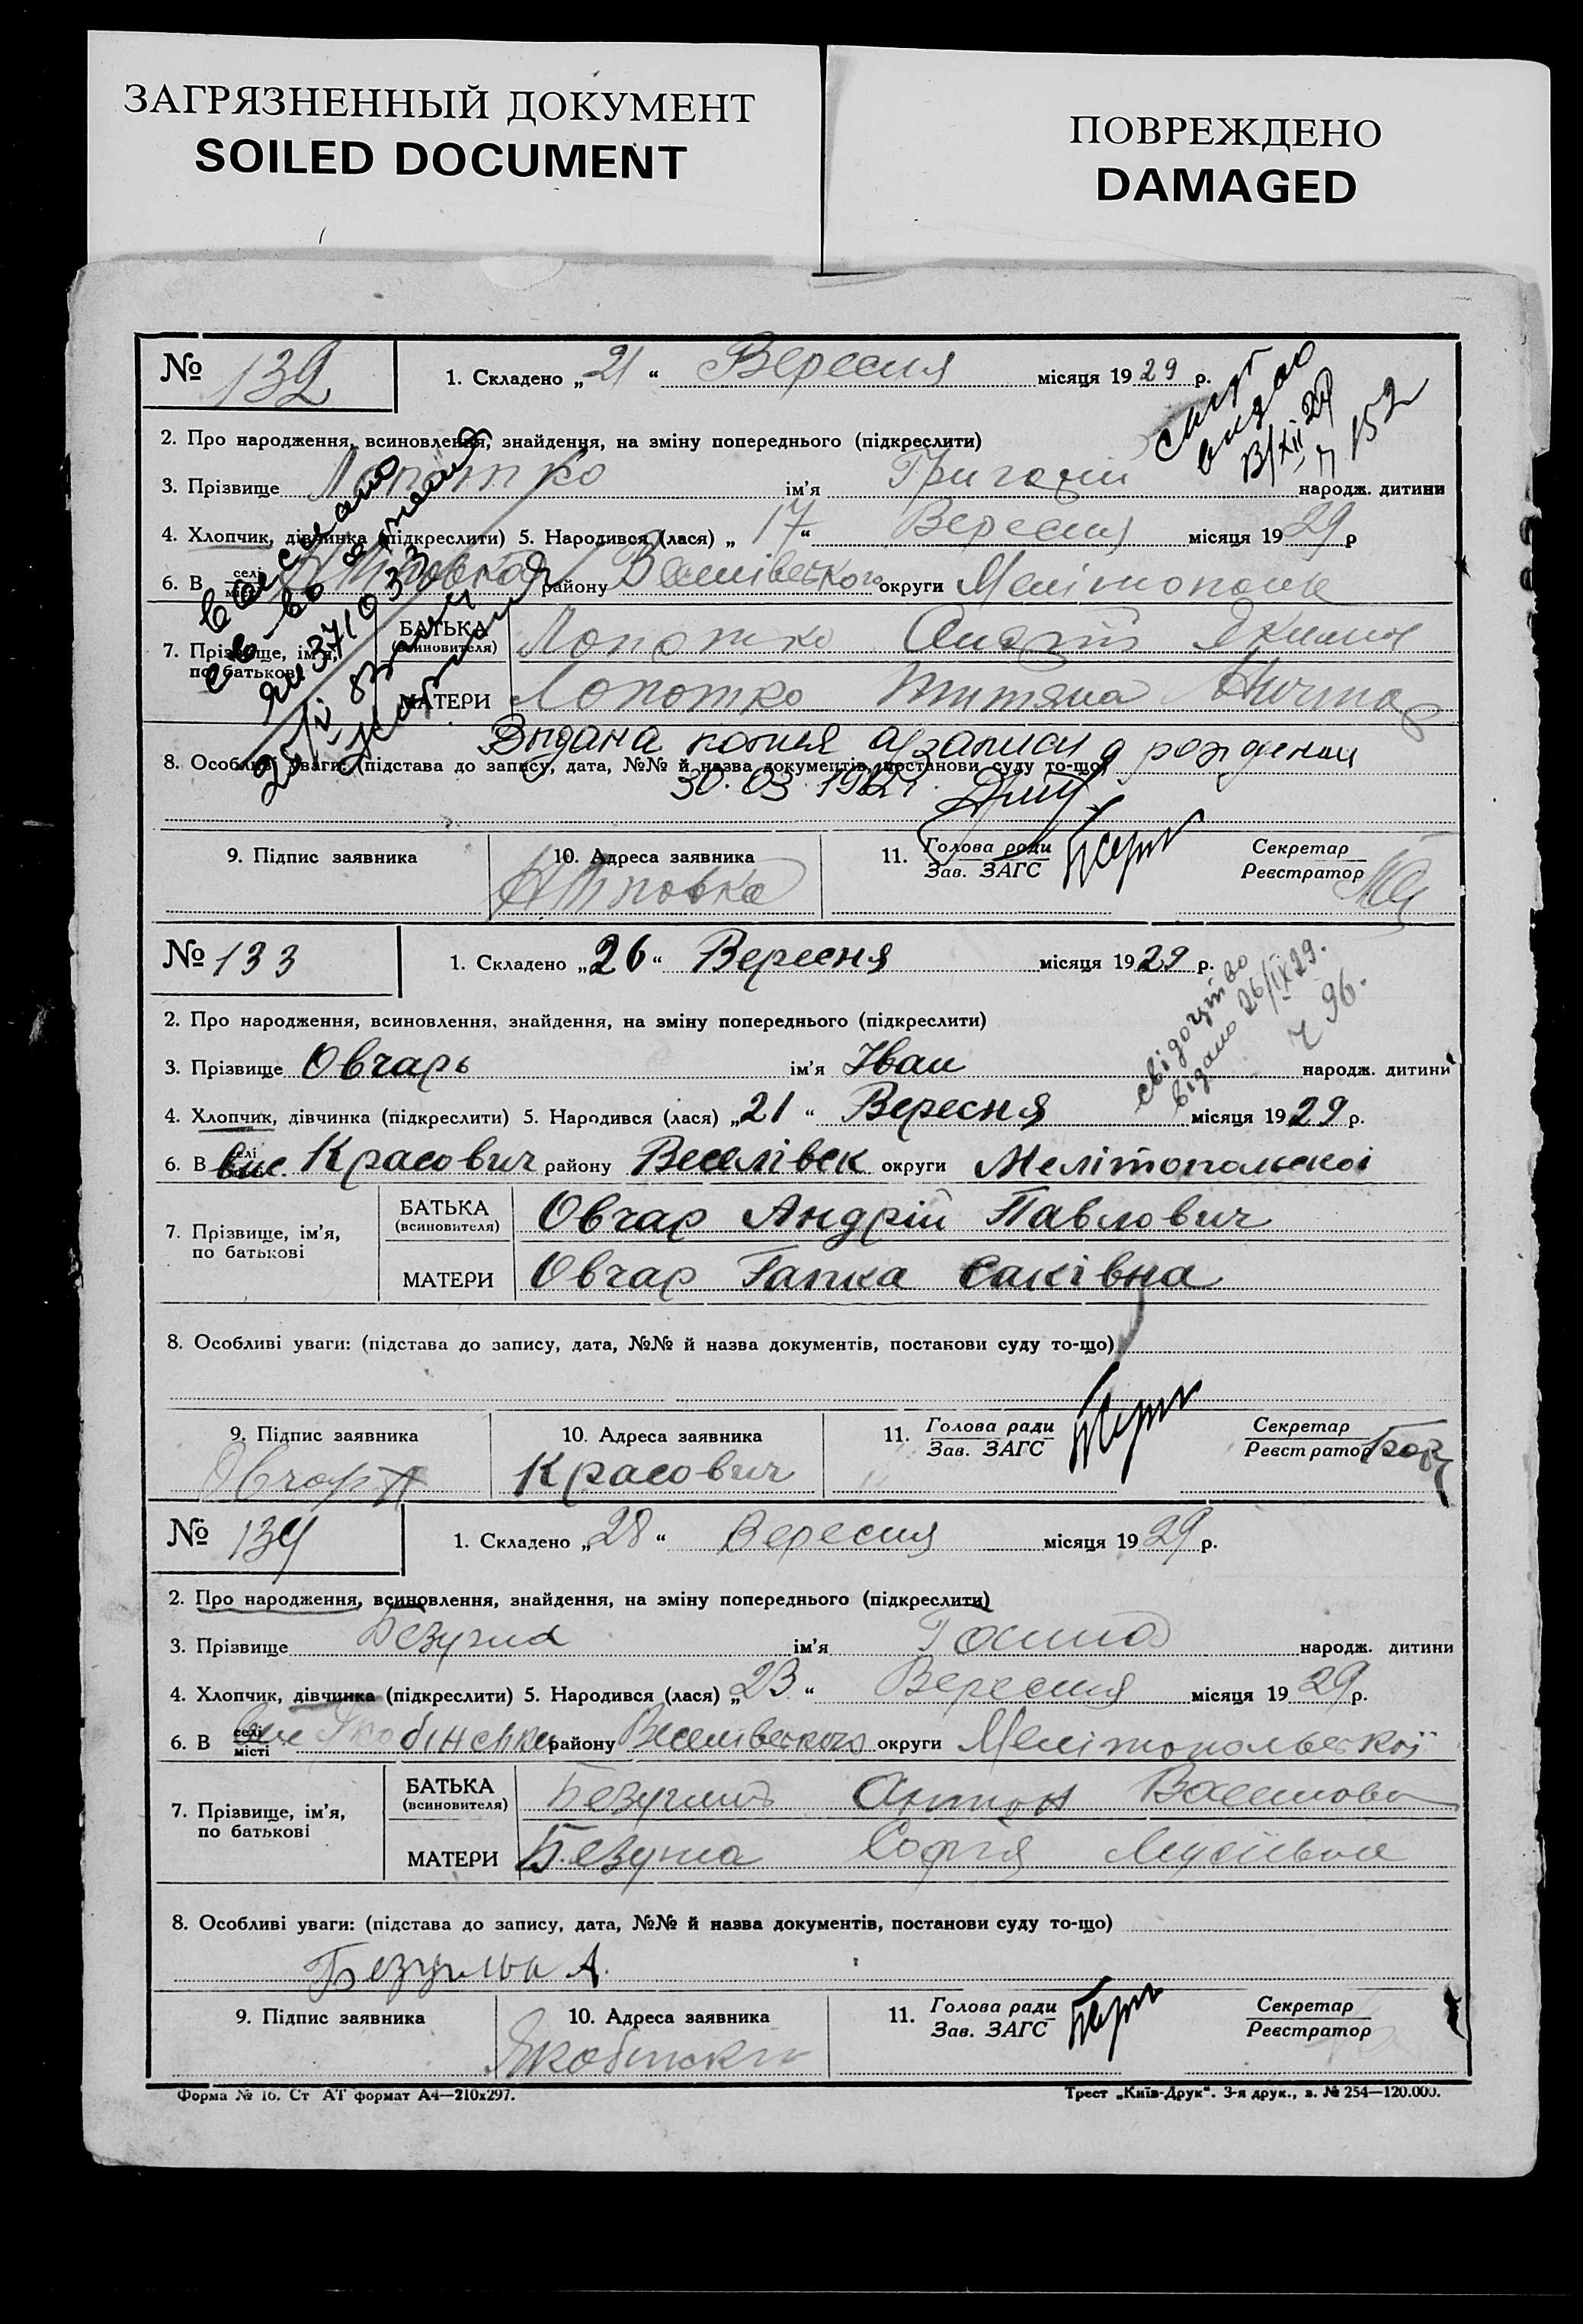 ЗАГРЯЗНЕННЫЙ ДОКУМЕНТ
SOILED DOCUMENT
ПОВРЕЖДЕНО
DAMAGED
№ 132
1. Складено „21“ Вересня місяця 1929 р.
2. Про народження, всиновлення, знайдення, на зміну попереднього (підкреслити)
3. Прізвище Лопотко ім'я Григорій народж. дитини
4. Хлопчик, дівчинка (підкреслити) 5. Народився (лася) „17“ Вересня місяця 1929 р
6. В селі місті району Веселівського округи Мелітополье
7. Прізвище, ім'я, по батькові
БАТЬКА (всиновителя) Лопотко Якимов
МАТЕРИ Лопотко Титяна
Выдана копия а/записи о рождении
8. Особливі уваги: (підстава до запису, дата, №№ й назва документів, постанови суду то-що)
30. 03.
9. Підпис заявника
10. Адреса заявника
11. Голова ради
Зав. ЗАГС
Секретар
Реєстратор
№ 133
1. Складено „26“ Вересня місяця 1929 р.
свідоцтво
відано 26/IX 29.
ч 96.
2. Про народження, всиновлення, знайдення, на зміну попереднього (підкреслити)
3. Прізвище Овчарь ім'я Іван народж. дитини
4. Хлопчик, дівчинка (підкреслити) 5. Народився (лася) „21“ Вересня місяця 1929 р.
6. В вис. Красович району Веселівск округи Мелітопольскоі
7. Прізвище, ім'я, по батькові
БАТЬКА (всиновителя) Овчар Андрій Павлович
МАТЕРИ Овчар Гапка Саківна
8. Особливі уваги: (підстава до запису, дата, №№ й назва документів, постанови суду то-що)
9. Підпис заявника
Овчар А
10. Адреса заявника
Красович
11. Голова ради
Зав. ЗАГС
Секретар
Реєстратор
№ 134
1. Складено „28“ Вересня місяця 1929 р.
2. Про народження, всиновлення, знайдення, на зміну попереднього (підкреслити)
3. Прізвище Безугла ім'я Ганна народж. дитини
4. Хлопчик, дівчинка (підкреслити) 5. Народився (лася) „23“ Вересня місяця 1929 р.
6. В селі місті району Веселівського округи Мелітопольської
7. Прізвище, ім'я, по батькові
БАТЬКА (всиновителя) Безуглий Антон
МАТЕРИ Безугла Софія Мусіївна
8. Особливі уваги: (підстава до запису, дата, №№ й назва документів, постанови суду то-що)
9. Підпис заявника
10. Адреса заявника
11. Голова ради
Зав. ЗАГС
Секретар
Реєстратор
Форма № 16. Ст АТ формат А4—210x297.
Трест „Київ-Друк“. 3-я друк., з. № 254—120.000.